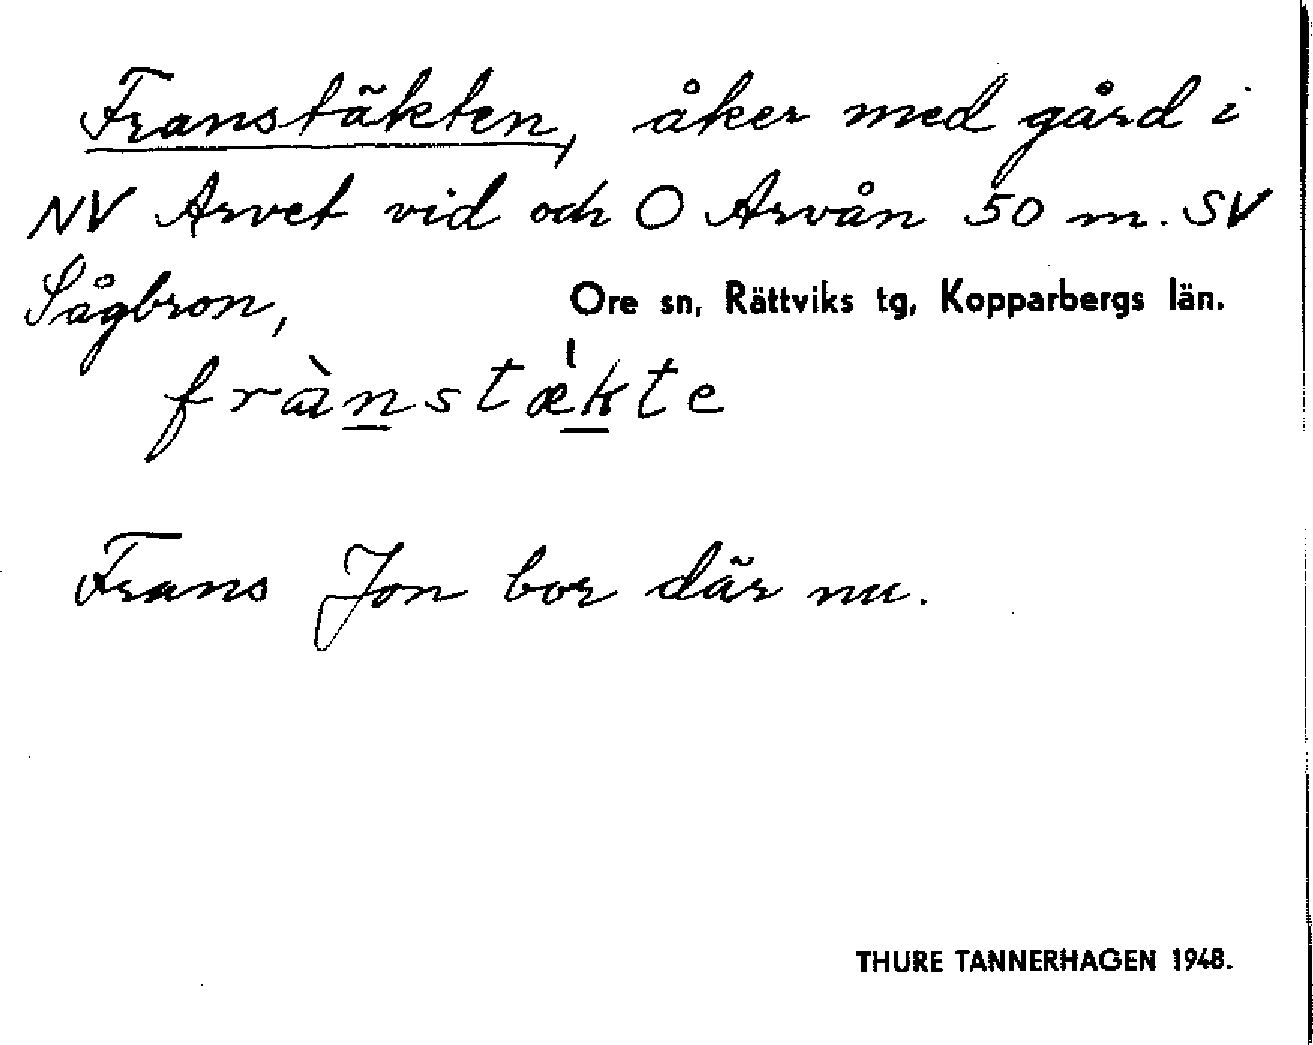 Franstäkten, åker med gård i
NV Arvet vid och O Arvån 50 m. SV
Sågbron, Ore sn, Rättviks tg, Kopparbergs län.
frànstækte
Frans Jon bor där nu.
THURE TANNERHAGEN 1948.